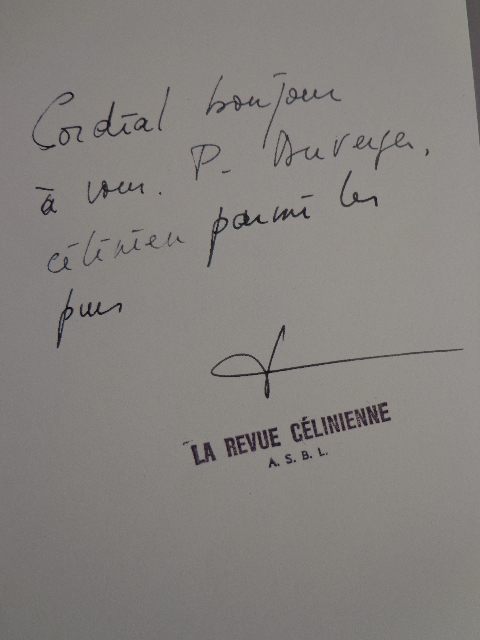 Cordial bonjour
à vous. P. Duverger,
célinien parmi les
purs
LA REVUE CÉLINIENNE
A. S. B. L.